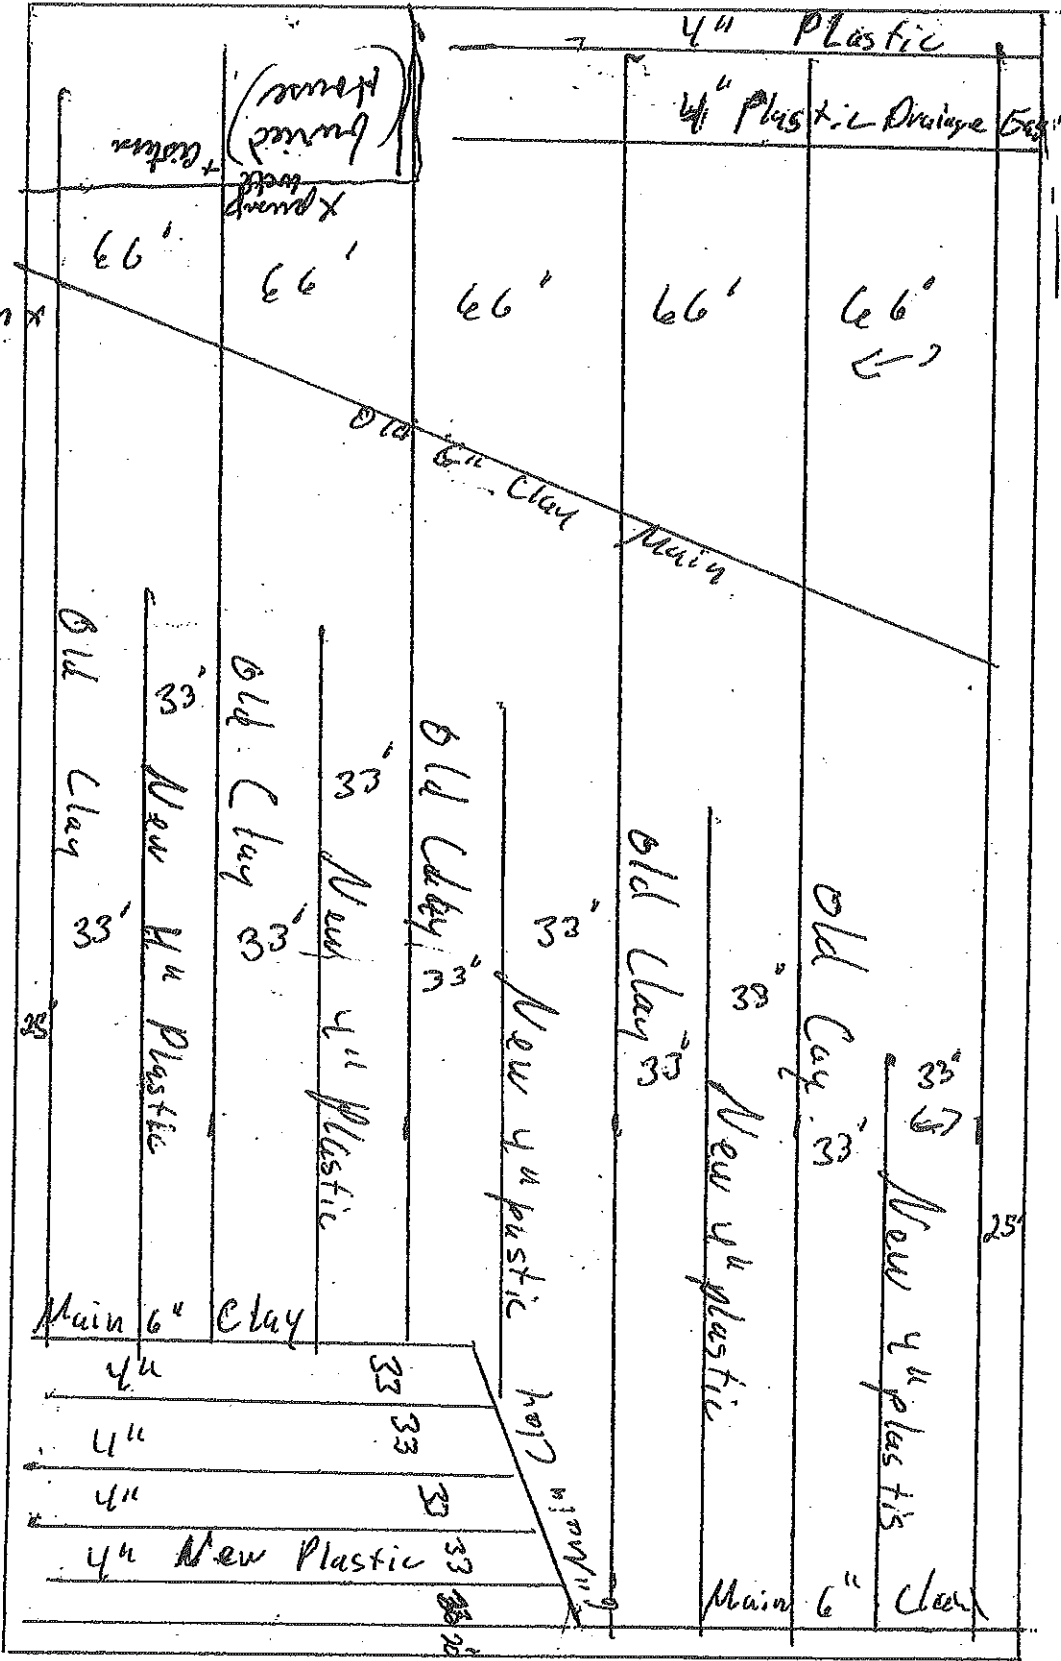 4" Plastic
4" Plastic Drainage
(buried House)
+ Cistern
x pump well
66'
66'
66"
66'
66'
Old 5" Clay Main
Old Clay
33'
33'
New 4" Plastic
Old Clay
33'
33'
New 4" Plastic
Old Clay
33"
33'
New 4" pastic
Old Clay
33'
33"
New 4" plastic
Old Cay
33'
33'
New 4" plastis
25'
25'
Main 6" Clay
4" 33
4" 33
4" 33
4" New Plastic 33
6" Main Clay
Main 6" Clay